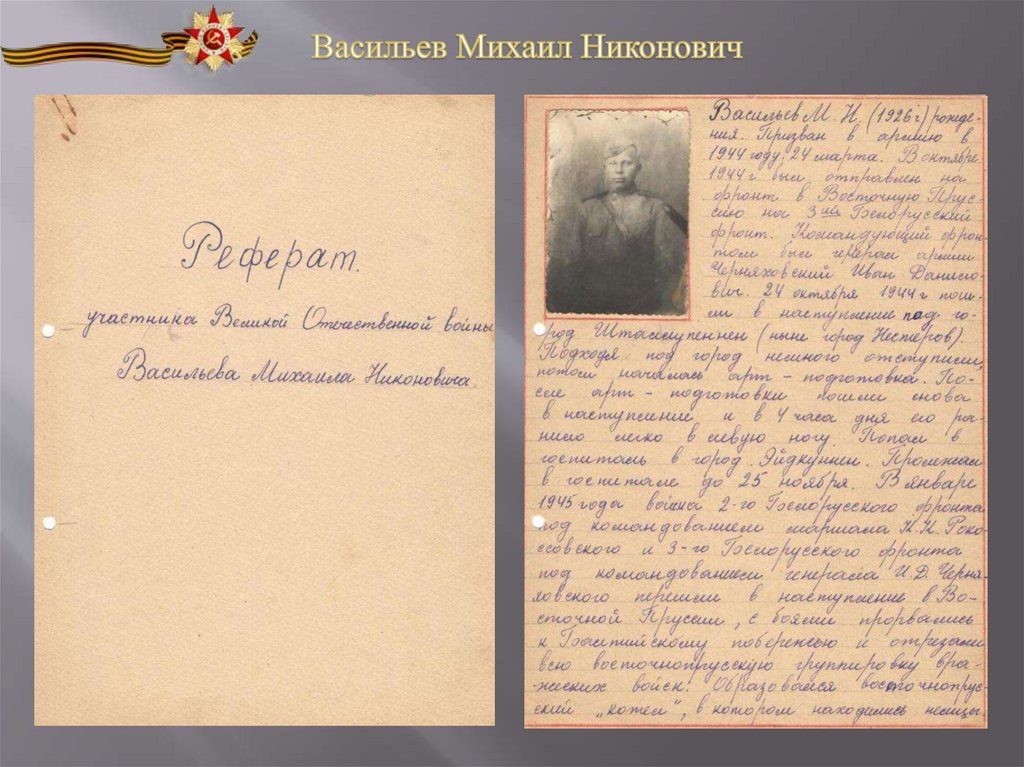 Васильев Михаил Никонович
Реферат.
участника Великой Отечественной войны
Васильева Михаила Никоновича.
Васильев М. Н. (1926г) рожде-
ния. Призван в армию в
1944 году. 24 марта. В октябре
1944 г был отправлен на
фронт в Восточную Прус-
сию на 3ий Белорусский
фронт. Командующий фрон-
том был генерал армии
Черняховский Иван Данило-
вич. 24 октября 1944 г пош-
ли в наступление под го-
род Шталлупеннен (ныне город Нестеров).
Подходя под город немного отступили,
потом началась арт - подготовка. По-
сле арт - подготовки пошли снова
в наступление и в 4 часа дня его ра-
нило легко в левую ногу. Попал в
госпиталь в город Эйдкуннен. Пролежал
в госпитале до 25 ноября. В январе
1945 года войска 2-го Белорусского фронта
под командованием маршала К.К. Роко-
ссовского и 3-го Белорусского фронта
под командованием генерала И.Д. Черня-
ховского перешли в наступление в Во-
сточной Пруссии, с боями прорвались
к Балтийскому побережью и отрезали
всю восточнопрусскую группировку вра-
жеских войск. Образовался восточнопрус-
ский „котел", в котором находились немцы.